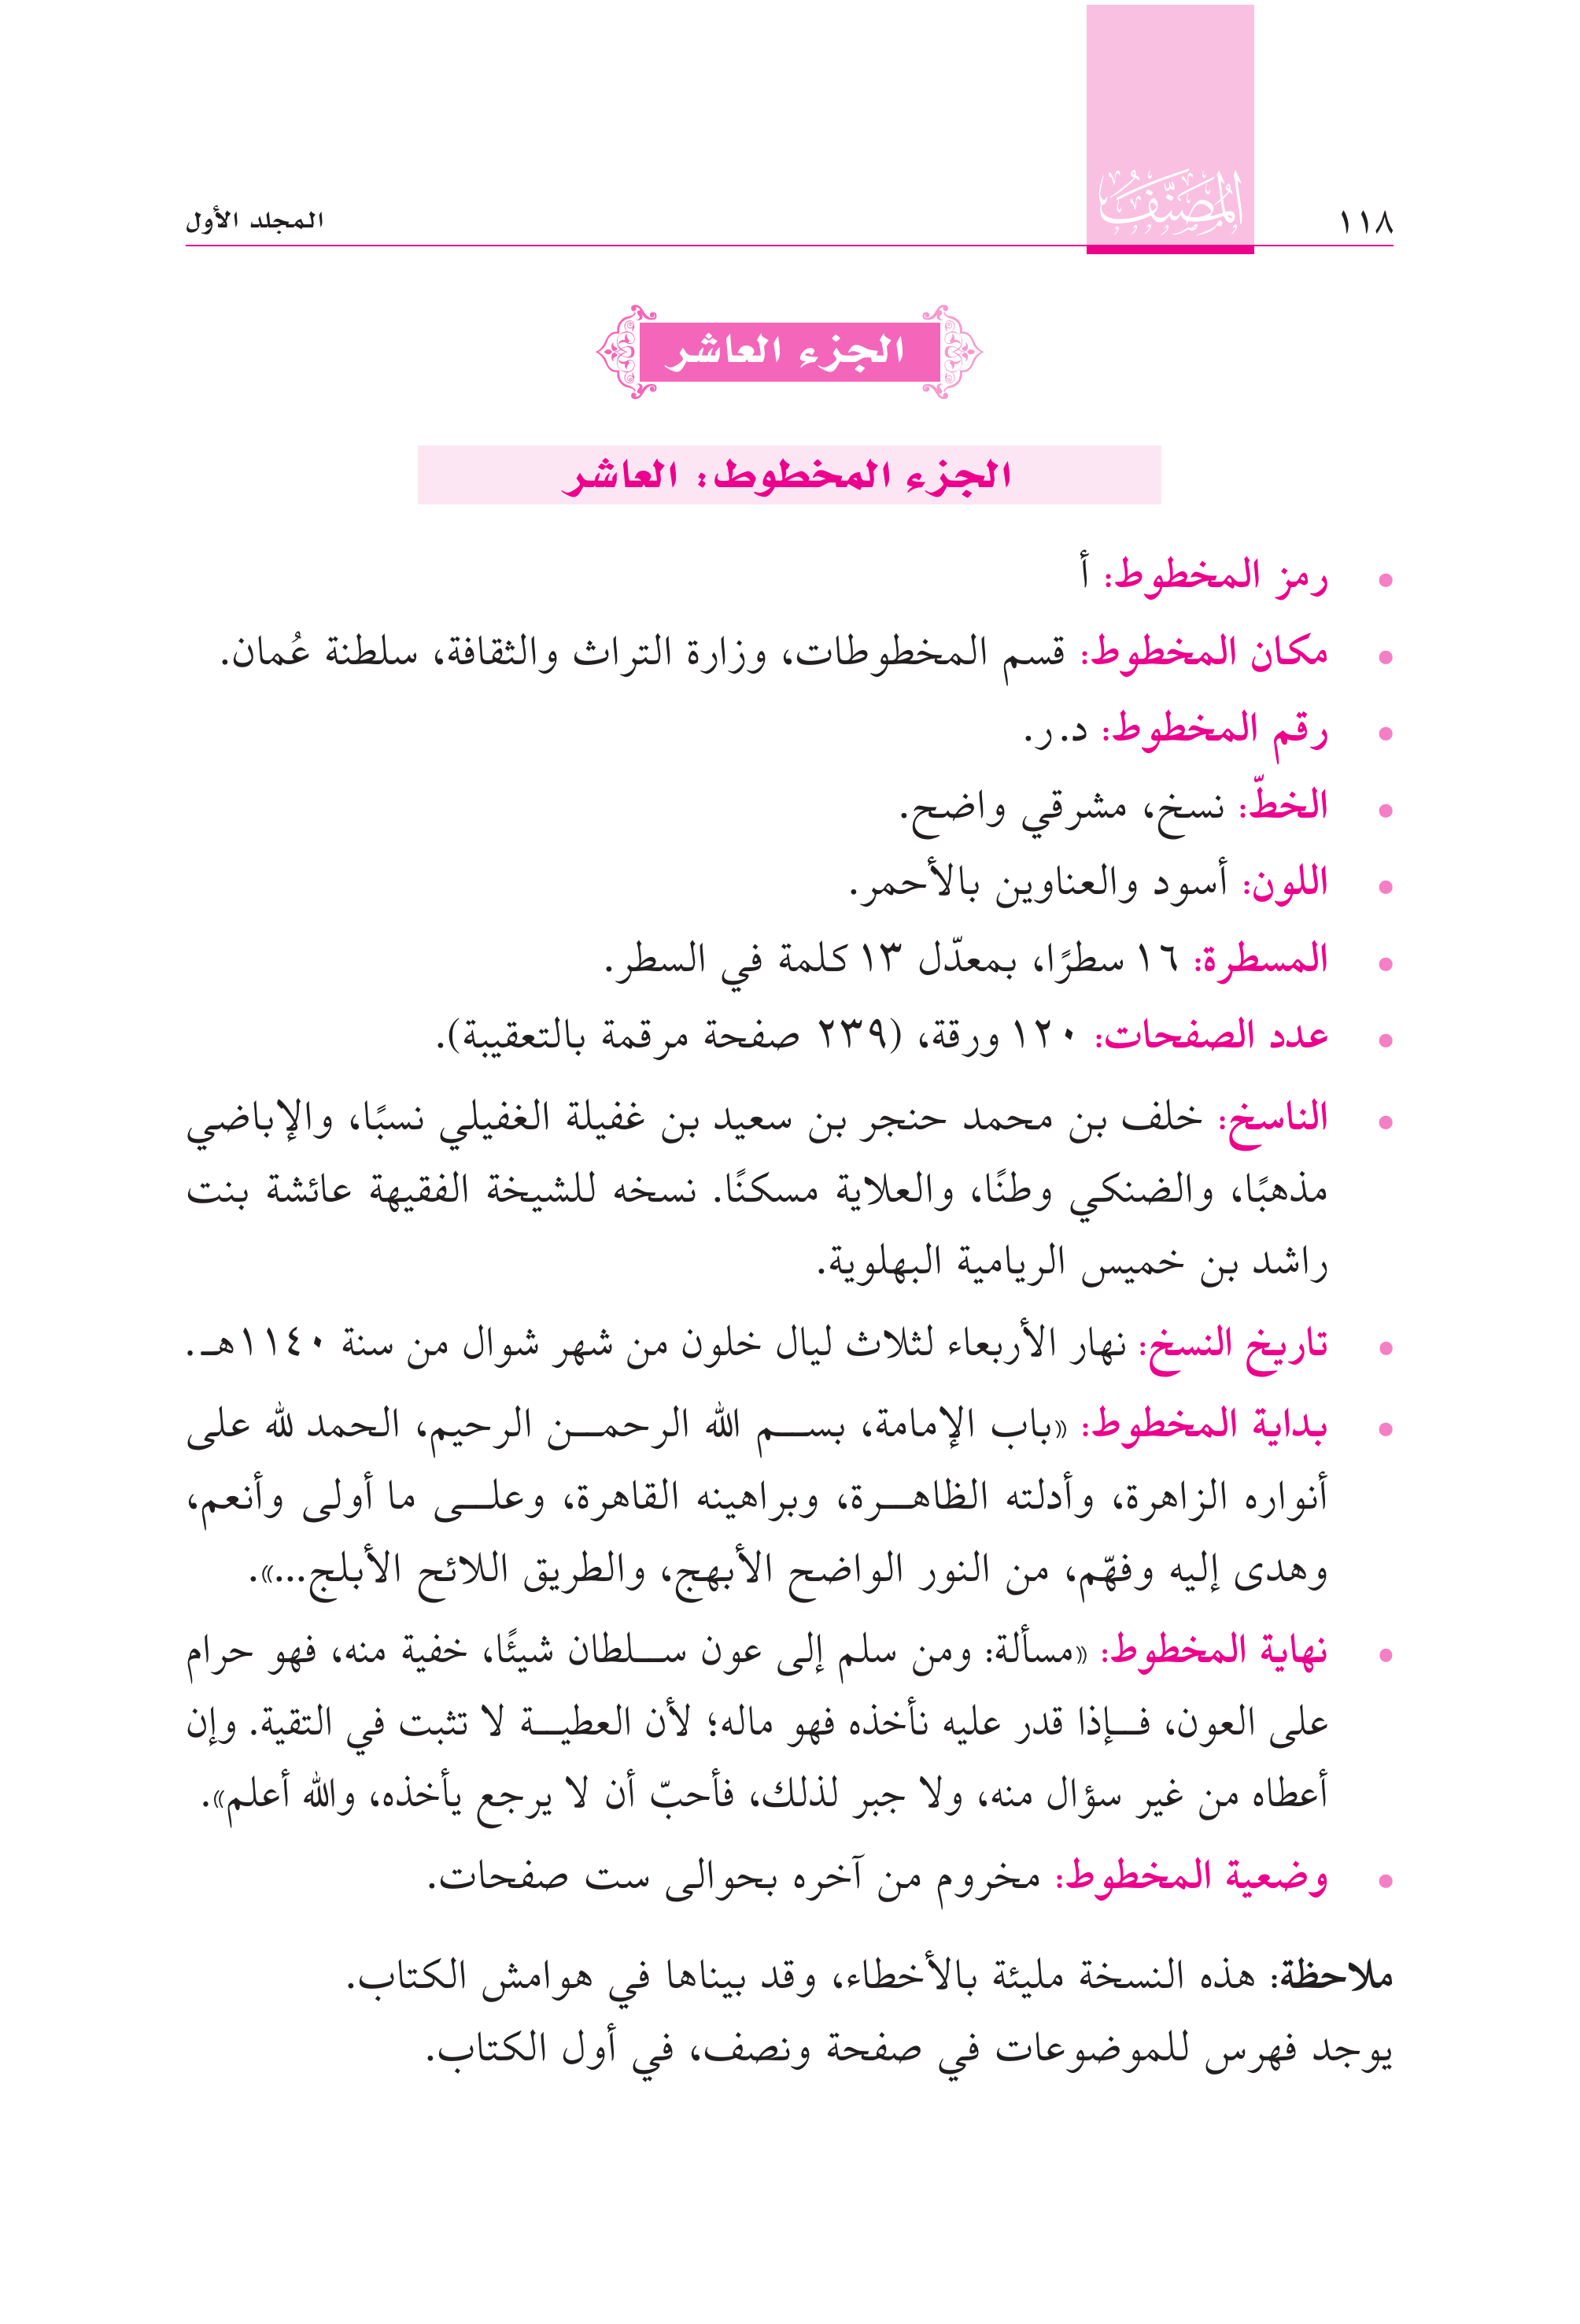 ١١٨
المُصَنَّفُ
المجلد الأول
الجزء العاشر
الجزء المخطوط: العاشر
• رمز المخطوط: أ
• مكان المخطوط: قسم المخطوطات، وزارة التراث والثقافة، سلطنة عُمان.
• رقم المخطوط: د.ر.
• الخطّ: نسخ، مشرقي واضح.
• اللون: أسود والعناوين بالأحمر.
• المسطرة: ١٦ سطرًا، بمعدّل ١٣ كلمة في السطر.
• عدد الصفحات: ١٢٠ ورقة، (٢٣٩ صفحة مرقمة بالتعقيبة).
• الناسخ: خلف بن محمد حنجر بن سعيد بن غفيلة الغفيلي نسبًا، والإباضي
مذهبًا، والضنكي وطنًا، والعلاية مسكنًا. نسخه للشيخة الفقيهة عائشة بنت
راشد بن خميس الريامية البهلوية.
• تاريخ النسخ: نهار الأربعاء لثلاث ليال خلون من شهر شوال من سنة ١١٤٠هـ.
• بداية المخطوط: «باب الإمامة، بســم الله الرحمــن الرحيم، الحمد لله على
أنواره الزاهرة، وأدلته الظاهــرة، وبراهينه القاهرة، وعلــى ما أولى وأنعم،
وهدى إليه وفهّم، من النور الواضح الأبهج، والطريق اللائح الأبلج...».
• نهاية المخطوط: «مسألة: ومن سلم إلى عون ســلطان شيئًا، خفية منه، فهو حرام
على العون، فــإذا قدر عليه نأخذه فهو ماله؛ لأن العطيــة لا تثبت في التقية. وإن
أعطاه من غير سؤال منه، ولا جبر لذلك، فأحبّ أن لا يرجع يأخذه، والله أعلم».
• وضعية المخطوط: مخروم من آخره بحوالى ست صفحات.
ملاحظة: هذه النسخة مليئة بالأخطاء، وقد بيناها في هوامش الكتاب.
يوجد فهرس للموضوعات في صفحة ونصف، في أول الكتاب.